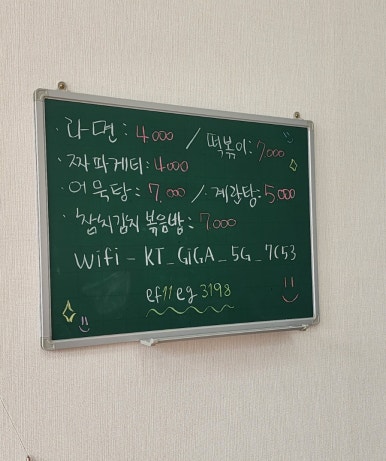 · 라면 : 4000 / 떡볶이 : 7,000
· 짜파게티 : 4000
· 어묵탕 : 7,000 / 계란탕 : 5000
· 참치김치 볶음밥 : 7,000
Wifi - KT_GiGA_5G_7C53
ef11eg3198